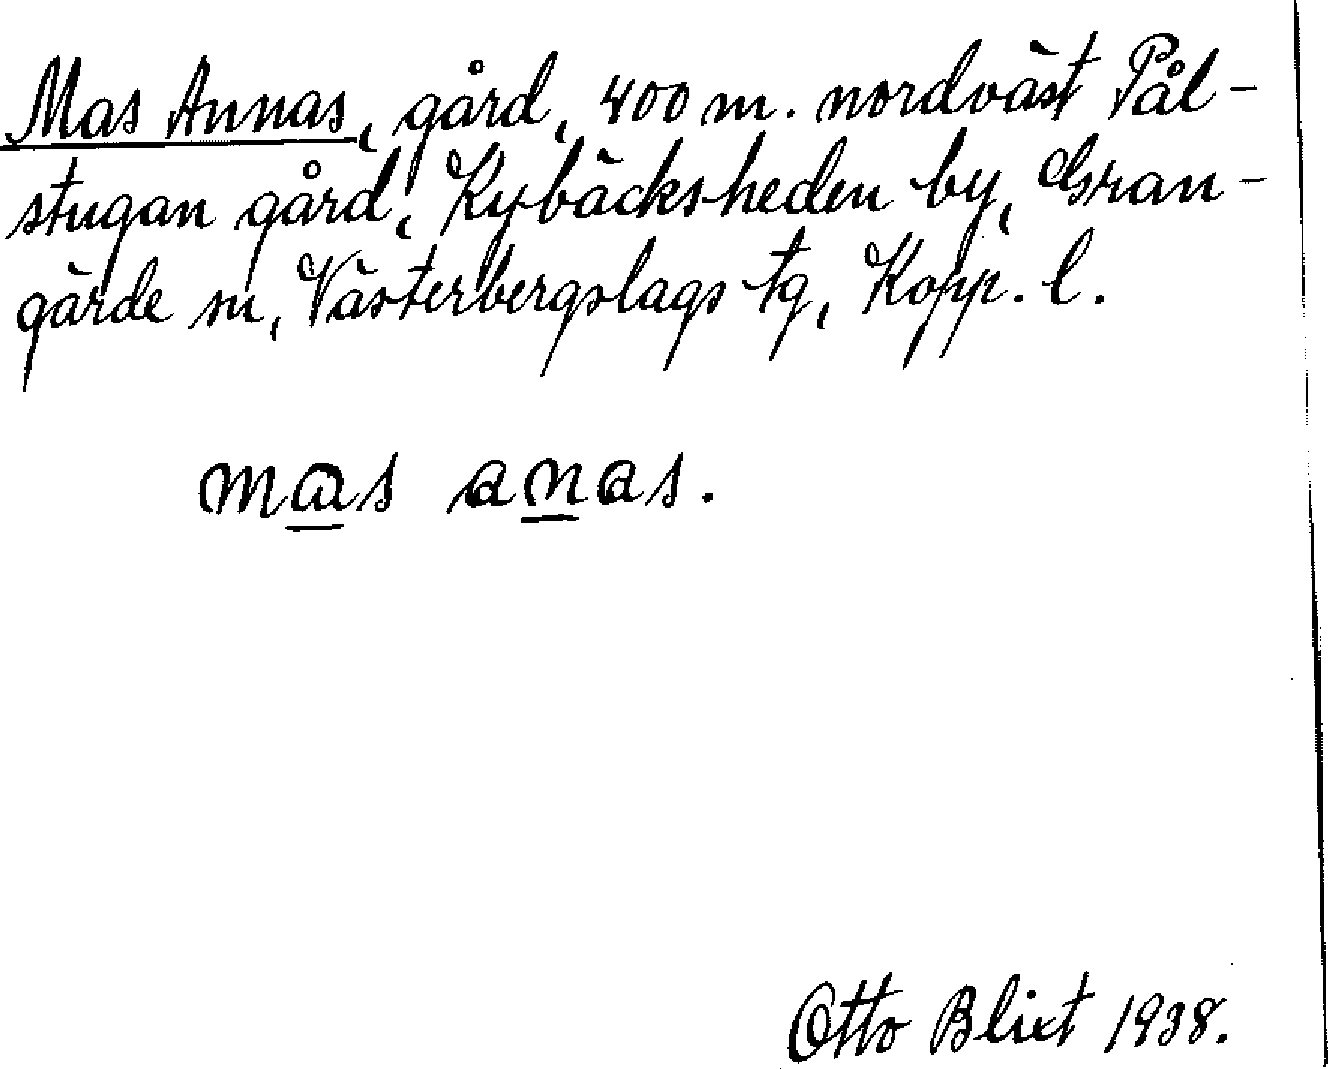 Mas Annas, gård, 400 m. nordväst Pål-
stugan gård, Kybäcksheden by, Gran-
gärde sn, Västerbergslags tg, Kopp. l.
mas anas.
Otto Blixt 1938.